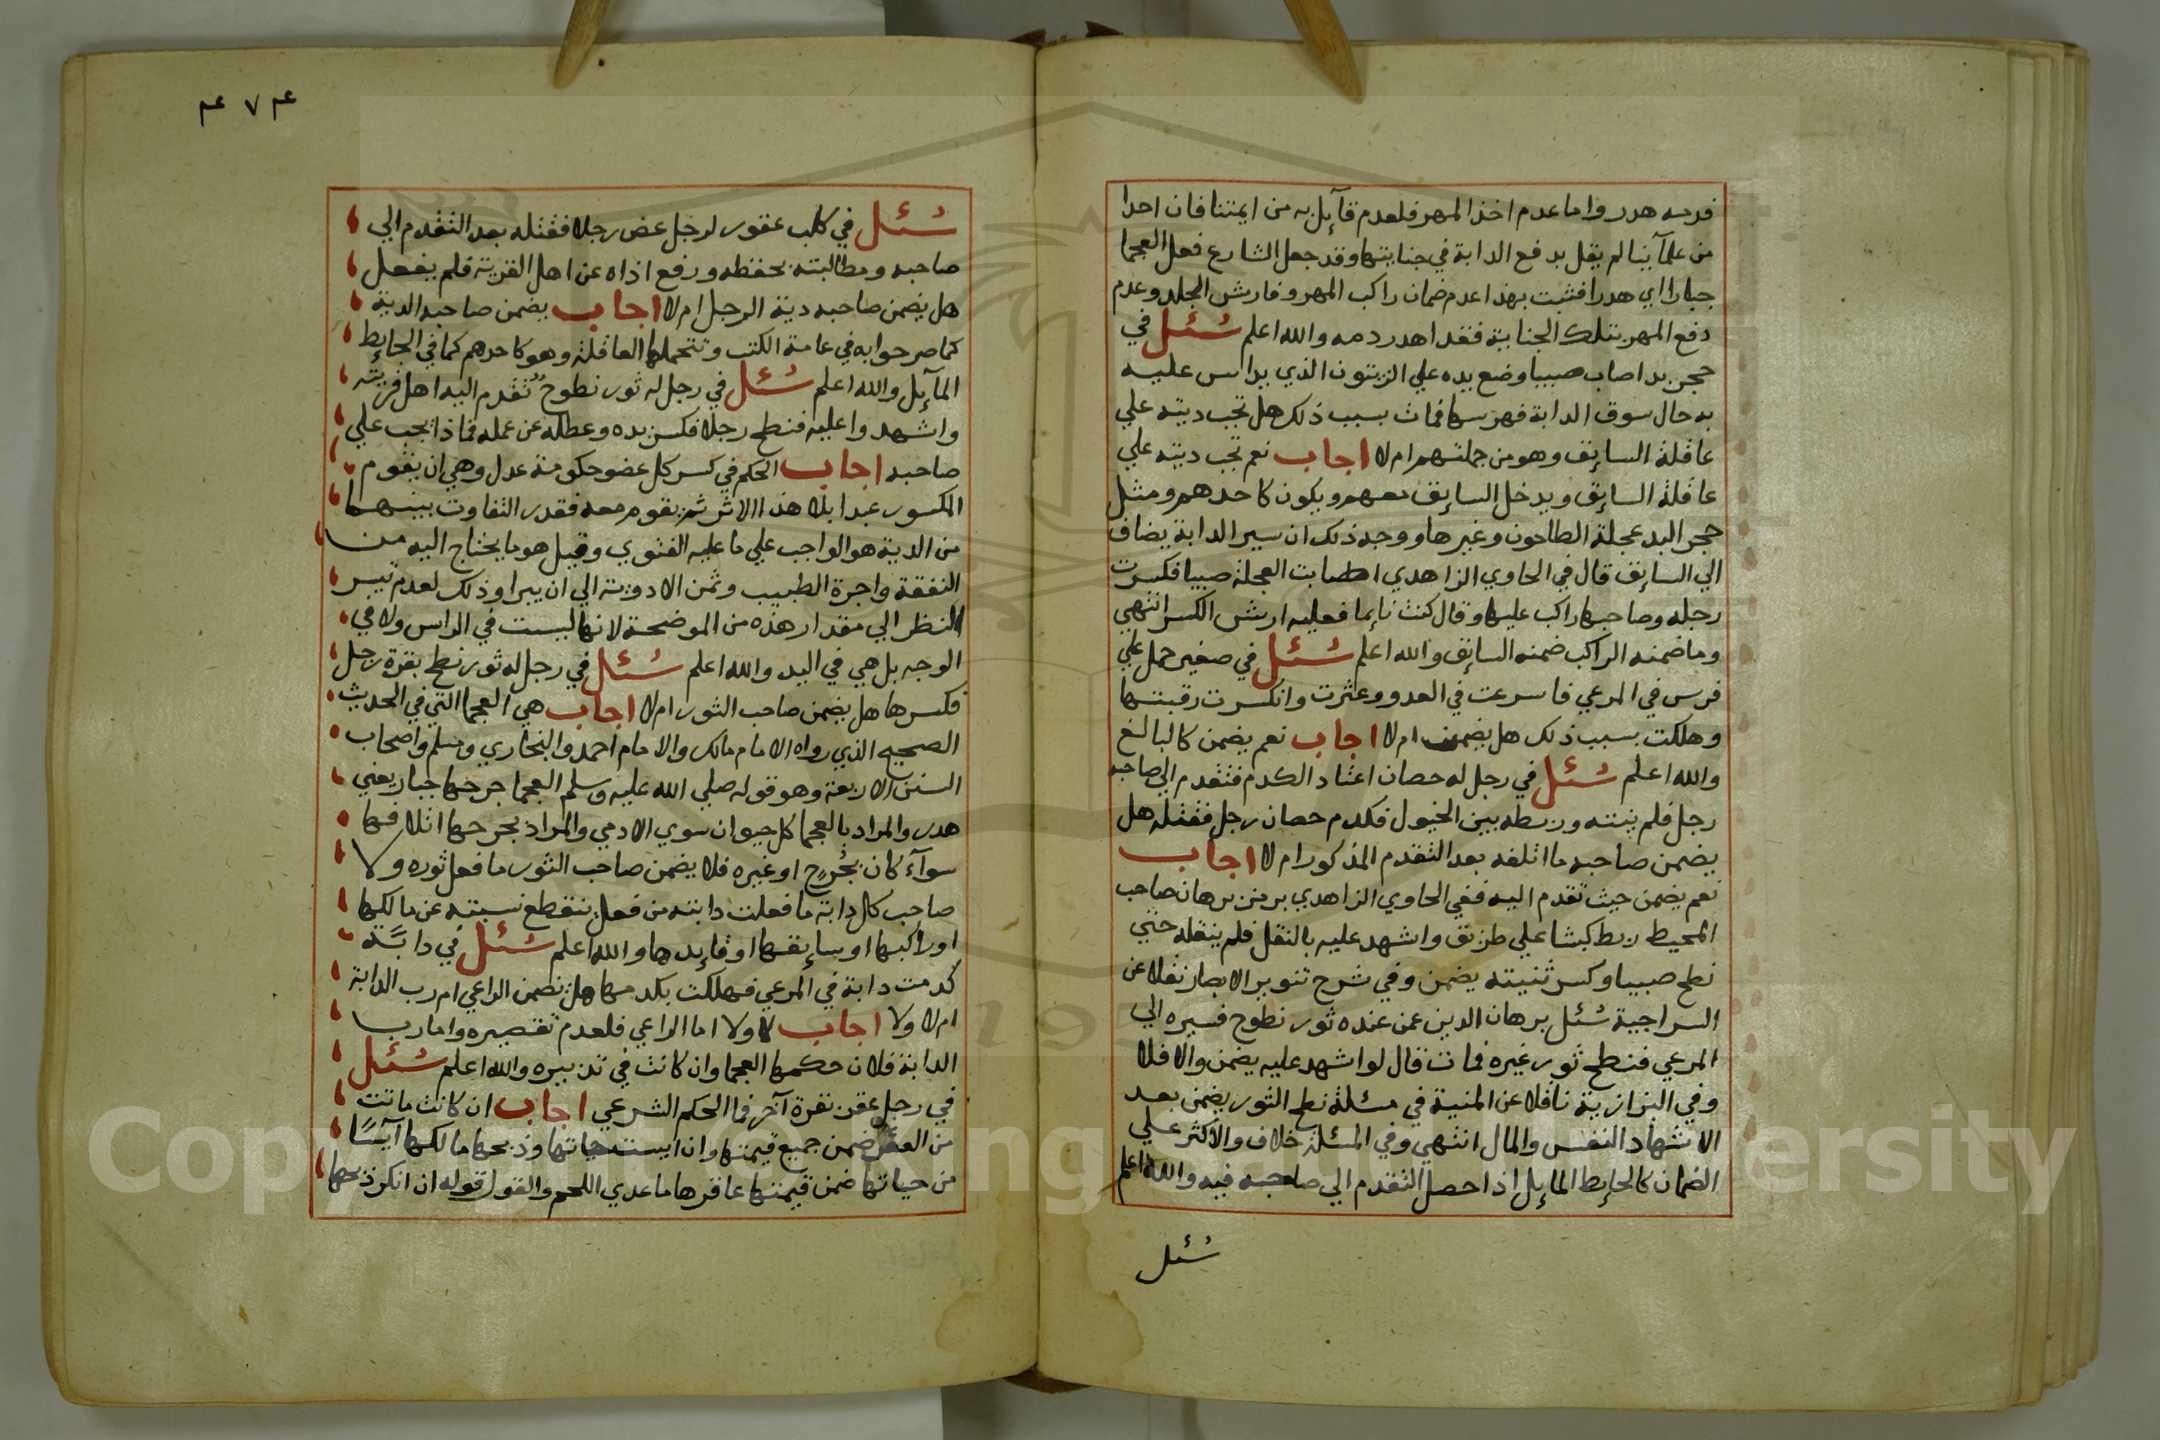 فدمه هدر واما عدم اخذ المهر فلعدم قآيل به من ايمتنا فان احدا
من علمآينا لم يقل بدفع الدابة في جنايتها وقد جعل الشارع فعل العجما
جبارا اي هدرا فثبت بهذا عدم ضمان راكب المهر وفارش الجلد وعدم
دفع المهر بتلك الجناية فقد اهدر دمه والله اعلم سُئل في
حجر بد اصاب صبيا وضع يده علي الزيتون الذي يداس عليه
به حال سوق الدابة فهرسها فمات بسبب ذلك هل تجب ديته علي
عاقلة السايق وهو من جملتهم ام لا اجاب نعم تجب ديته علي
عاقلة السايق ويدخل السايق معهم ويكون كاحدهم ومثل
حجر البد عجلة الطاحون وغيرها ووجه ذلك ان سير الدابة يضاف
الي السايق قال في الحاوي الزاهدي اصابت العجلة صبيا فكسرت
رجله وصاحبها راكب عليها وقال كنت نايما فعليه ارش الكسر انتهي
وما ضمنه الراكب ضمنه السايق والله اعلم سُئل في صغير حمل علي
فرس في المرعي فاسرعت في العدو وعثرت وانكسرت رقبتها
وهلكت بسبب ذلك هل يضمن ام لا اجاب نعم يضمن كالبالغ
والله اعلم سُئل في رجل له حصان اعتاد الكدم فتقدم الي صاحبه
رجل فلم ينته وربطه بين الخيول فكدم حصان رجل فقتله هل
يضمن صاحبه ما اتلفه بعد التقدم المذكور ام لا اجاب
نعم يضمن حيث تقدم اليه ففي الحاوي الزاهدي برمز برهان صاحب
المحيط ربط كبشا علي طريق واشهد عليه بالنقل فلم ينقله حتي
نطح صبيا وكسر ثنيته يضمن وفي شرح تنوير الابصار نقلا عن
السراجية سُئل برهان الدين عمن عنده ثور نطوح فسيره الي
المرعي فنطح ثور غيره فمات قال لو اشهد عليه يضمن والا فلا
وفي البزازية نافلا عن المنية في مسئلة نطح الثور يضمن بعد
الاشهاد النفس والمال انتهي وفي المسئلة خلاف والاكثر علي
الضمان كالحايط المايل اذا حصل التقدم الي صاحبه فيه والله اعلم
سُئل
٤٧٤
سُئل في كلب عقور لرجل عض رجلا فقتله بعد التقدم الي
صاحبه ومطالبته بحفظه ورفع اذاه عن اهل القرية فلم يفعل
هل يضمن صاحبه دية الرجل ام لا اجاب يضمن صاحبه الدية
كما صر حوابه في عامة الكتب وتتحملها العاقلة وهو كاحدهم كما في الحايط
المآيل والله اعلم سُئل في رجل له ثور نطوح تقدم اليه اهل قريته
واشهدوا عليه فنطح رجلا فكسر يده وعطله عن عمله فماذا يجب علي
صاحبه اجاب الحكم في كسر كل عضو حكومة عدل وهي ان يقوم
المكسور عبدا بلا هذا الاثر ثم يقوم معه فقدر التفاوت بينهما
من الدية هو الواجب علي ما عليه الفتوي وقيل هو ما يحتاج اليه من
النفقة واجرة الطبيب وثمن الادوية الي ان يبرا وذلك لعدم تيسر
النظر الي مقدار هذه من الموضحة لانها ليست في الراس ولا في
الوجه بل هي في اليد والله اعلم سُئل في رجل له ثور نطح بقرة رجل
فكسرها هل يضمن صاحب الثور ام لا اجاب هي العجما التي في الحديث
الصحيح الذي رواه الامام مالك والامام احمد والبخاري ومسلم واصحاب
السنن الاربعة وهو قوله صلي الله عليه وسلم العجما جرحها جبار يعني
هدر والمراد بالعجما كل حيوان سوي الادمي والمراد بجرحها اتلافها
سوآء كان بجُرح او غيره فلا يضمن صاحب الثور ما فعل ثوره ولا
صاحب كل دابة ما فعلت دابته من فعل تنقطع نسبته عن مالكها
او راكبها او سايقها او قايدها والله اعلم سُئل في دابة
كدمت دابة في المرعي فهلكت بكدمها هل يضمن الراعي ام رب الدابة
ام لا ولا اجاب لا ولا اما الراعي فلعدم تقصيره واما رب
الدابة فلان حكمها العجما وان كانت في تدبيره والله اعلم سُئل
في رجل عقر بقرة آخر فما الحكم الشرعي اجاب ان كانت ماتت
من العقر ضمن جميع قيمتها وان ايست حياتها وذبحها مالكها آيسًا
من حياتها ضمن قيمتها عاقرها ما عدي اللحم والقول قوله ان انكر ذبحها
Copyright © King Saud University